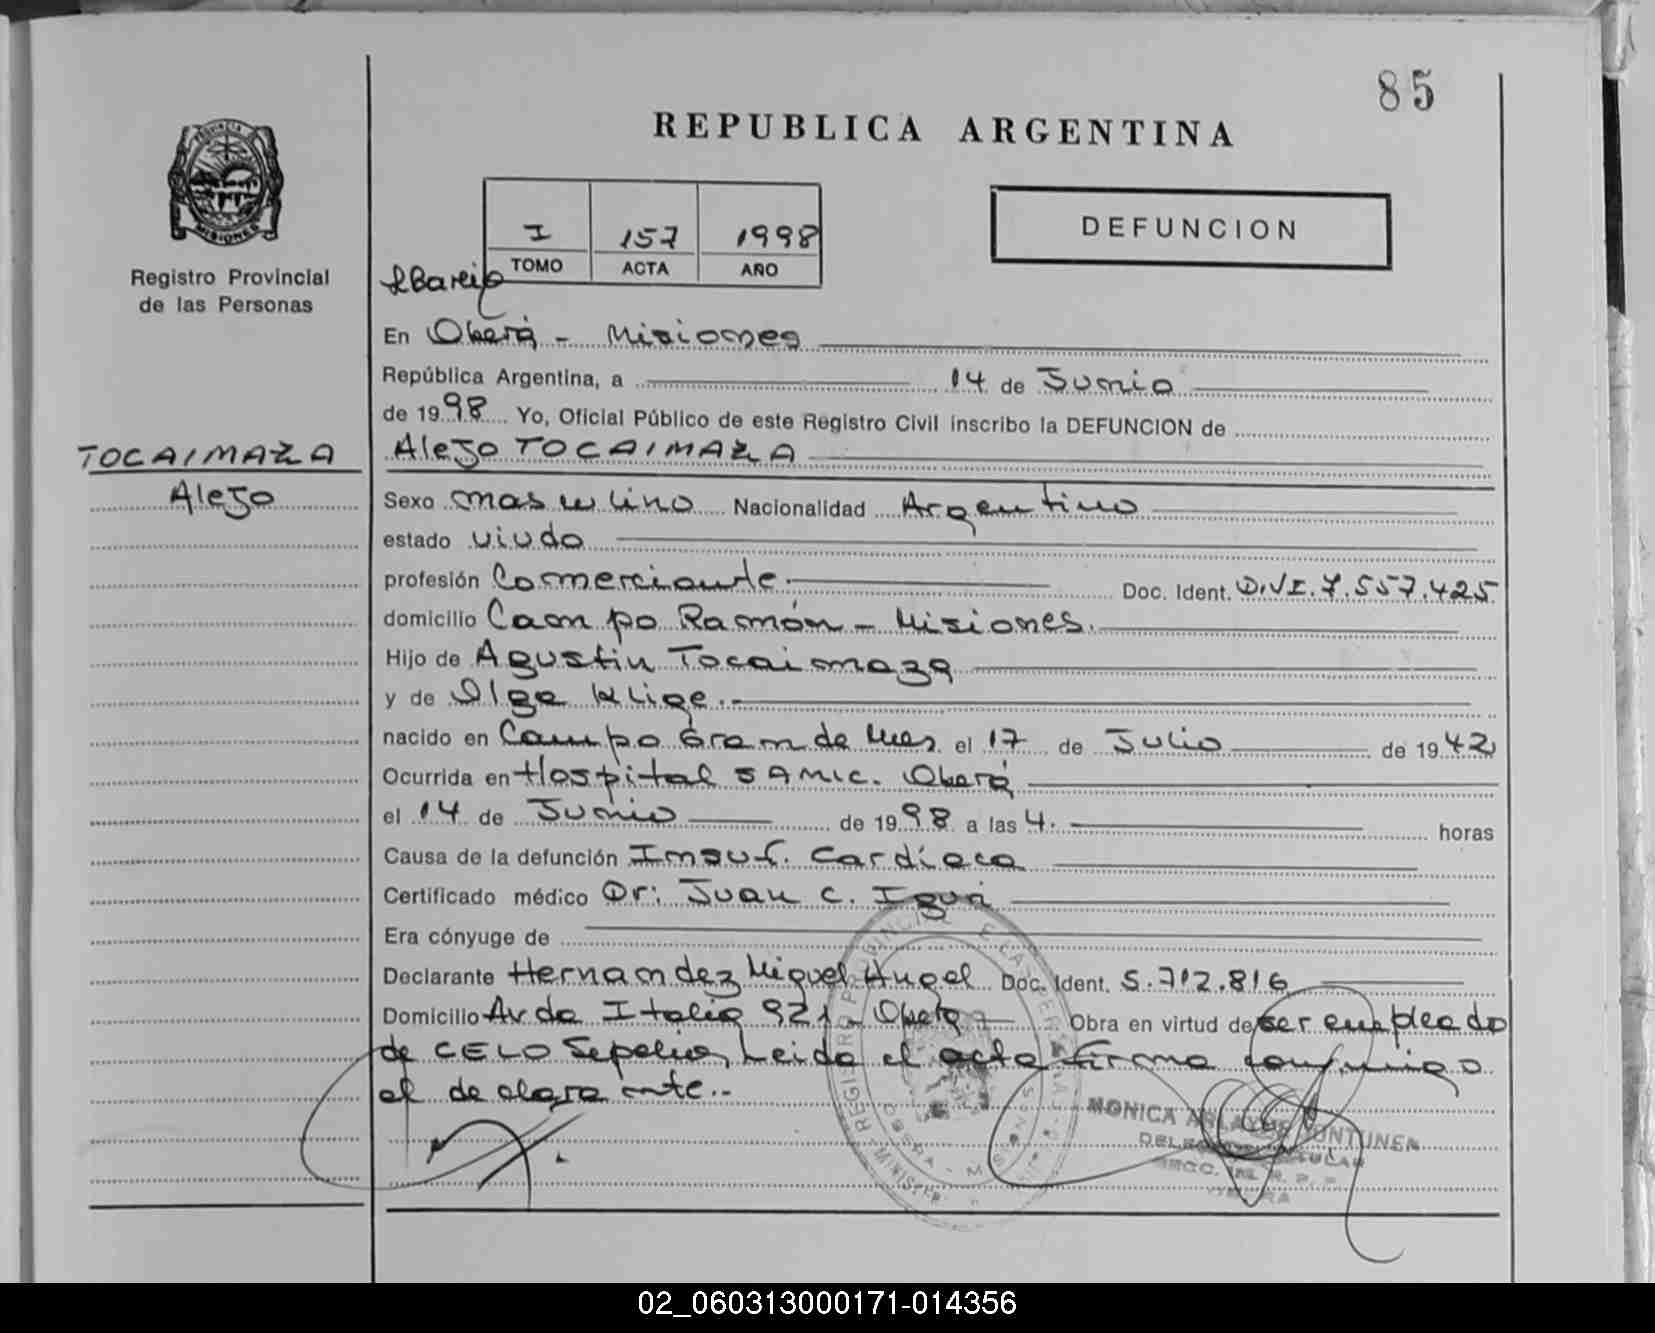 85
REPUBLICA ARGENTINA
DEFUNCION
I 157 1998
TOMO ACTA AÑO
PROVINCIA DE
MISIONES
Registro Provincial
de las Personas
En Oberá - Misiones
República Argentina, a 14 de Junio
de 1998 Yo, Oficial Público de este Registro Civil inscribo la DEFUNCION de
TOCAIMAZA
Alejo TOCAIMAZA
Alejo
Sexo masculino Nacionalidad Argentino
estado viudo
profesión Comerciante. Doc. Ident. D.N.I. 7.557.425
domicilio Campo Ramón - Misiones.
Hijo de Agustin Tocaimaza
y de Olga Klige.-
nacido en Campo Grande Mnes el 17 de Julio de 1942
Ocurrida en Hospital SAMIC. Oberá
el 14 de Junio de 1998 a las 4. horas
Causa de la defunción Insuf. Cardíaca
Certificado médico Dr: Juan C.
Era cónyuge de
Declarante Hernandez Miguel Angel Doc. Ident. 5.712.816
Domicilio Avda Italia 921 - Oberá Obra en virtud de ser empleado
de CELO Sepelios, Leida el acta firma conmigo
el declarante.-
MONICA
02_060313000171-014356